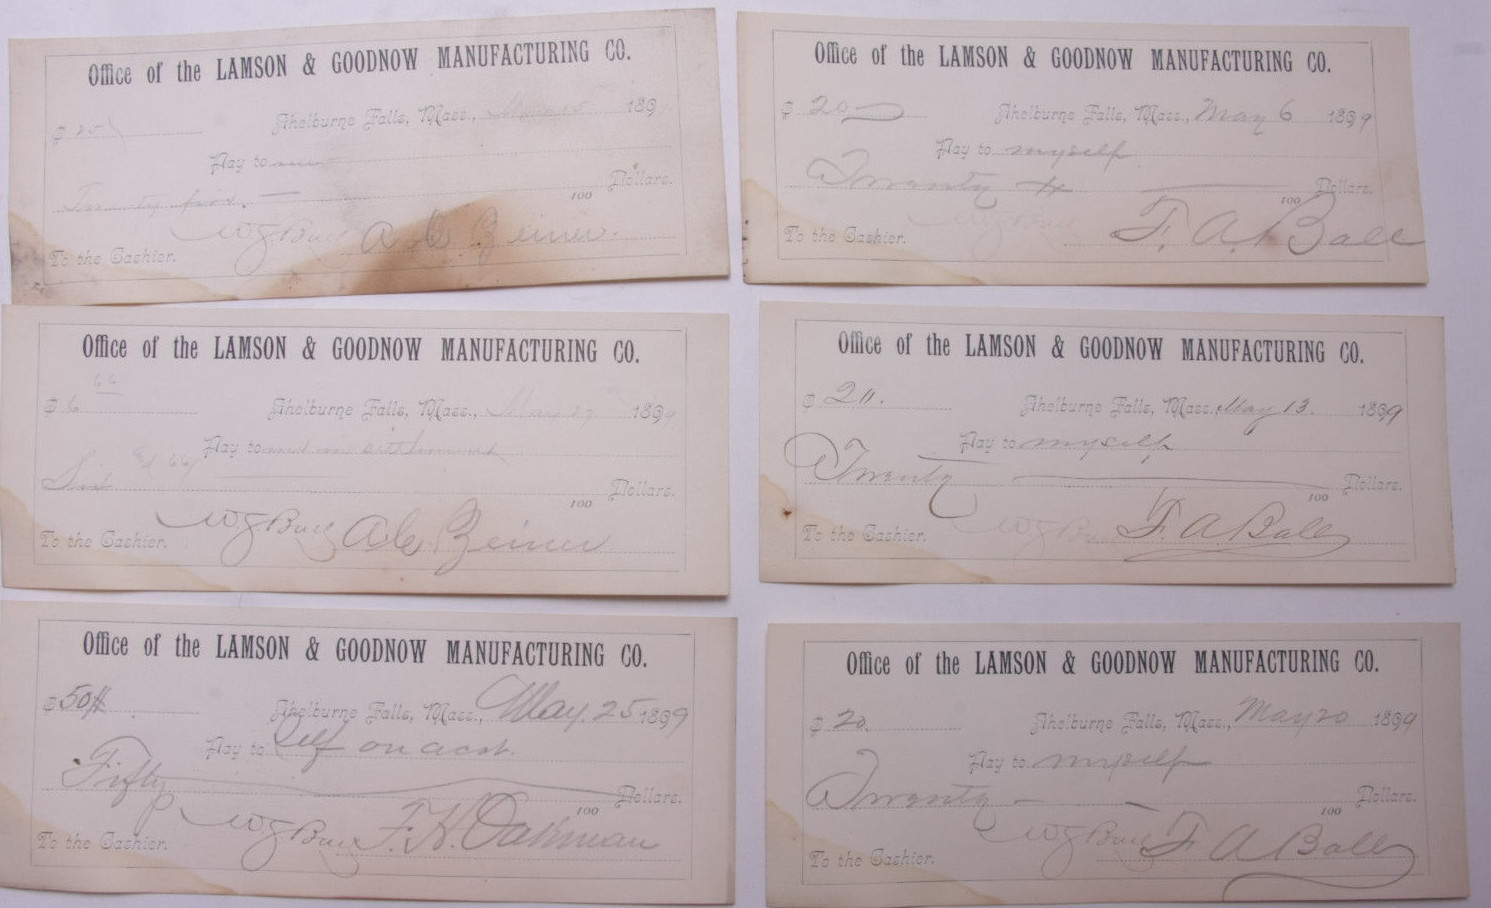 Office of the LAMSON & GOODNOW MANUFACTURING CO.
$ 25 Shelburne Falls, Mass., 189
Pay to
Twenty five. 100 Dollars.
To the Cashier.
Office of the LAMSON & GOODNOW MANUFACTURING CO.
$ 20 Shelburne Falls, Mass., May 6 1899
Pay to myself
Twenty 100 Dollars.
To the Cashier. F. A. Ball
Office of the LAMSON & GOODNOW MANUFACTURING CO.
$ 6 66 Shelburne Falls, Mass., 189
Pay to
Six 66 100 Dollars.
To the Cashier.
Office of the LAMSON & GOODNOW MANUFACTURING CO.
$ 20. Shelburne Falls, Mass., May 13. 1899
Pay to myself
Twenty 100 Dollars.
To the Cashier. F. A Ball
Office of the LAMSON & GOODNOW MANUFACTURING CO.
$ 50 Shelburne Falls, Mass., May. 25 1899
Pay to Self on acct.
Fifty 100 Dollars.
To the Cashier. F. H. Oakman
Office of the LAMSON & GOODNOW MANUFACTURING CO.
$ 20. Shelburne Falls, Mass., May 20 1899
Pay to myself
Twenty 100 Dollars.
To the Cashier. F A Ball